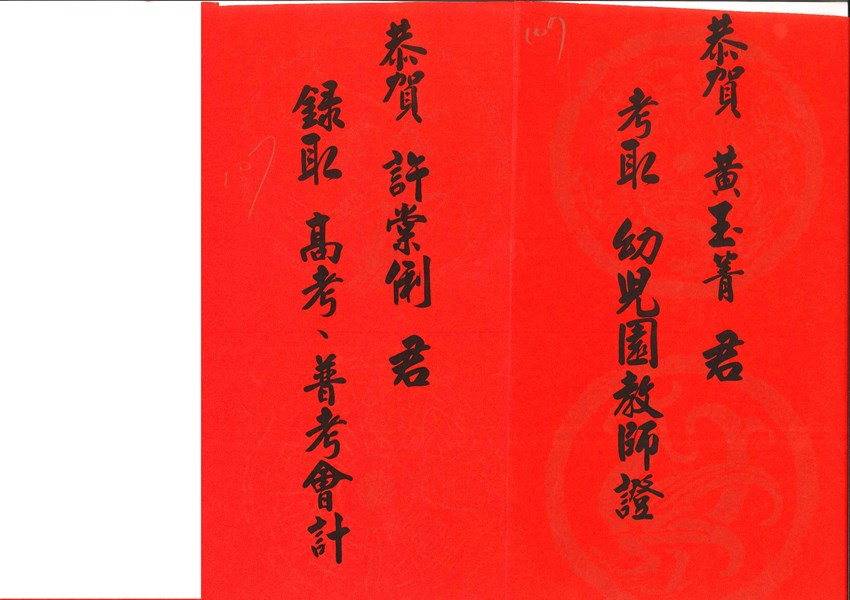 恭賀 黃玉菁 君
考取 幼兒園教師證
107
恭賀 許棠俐 君
錄取 高考、普考會計
107